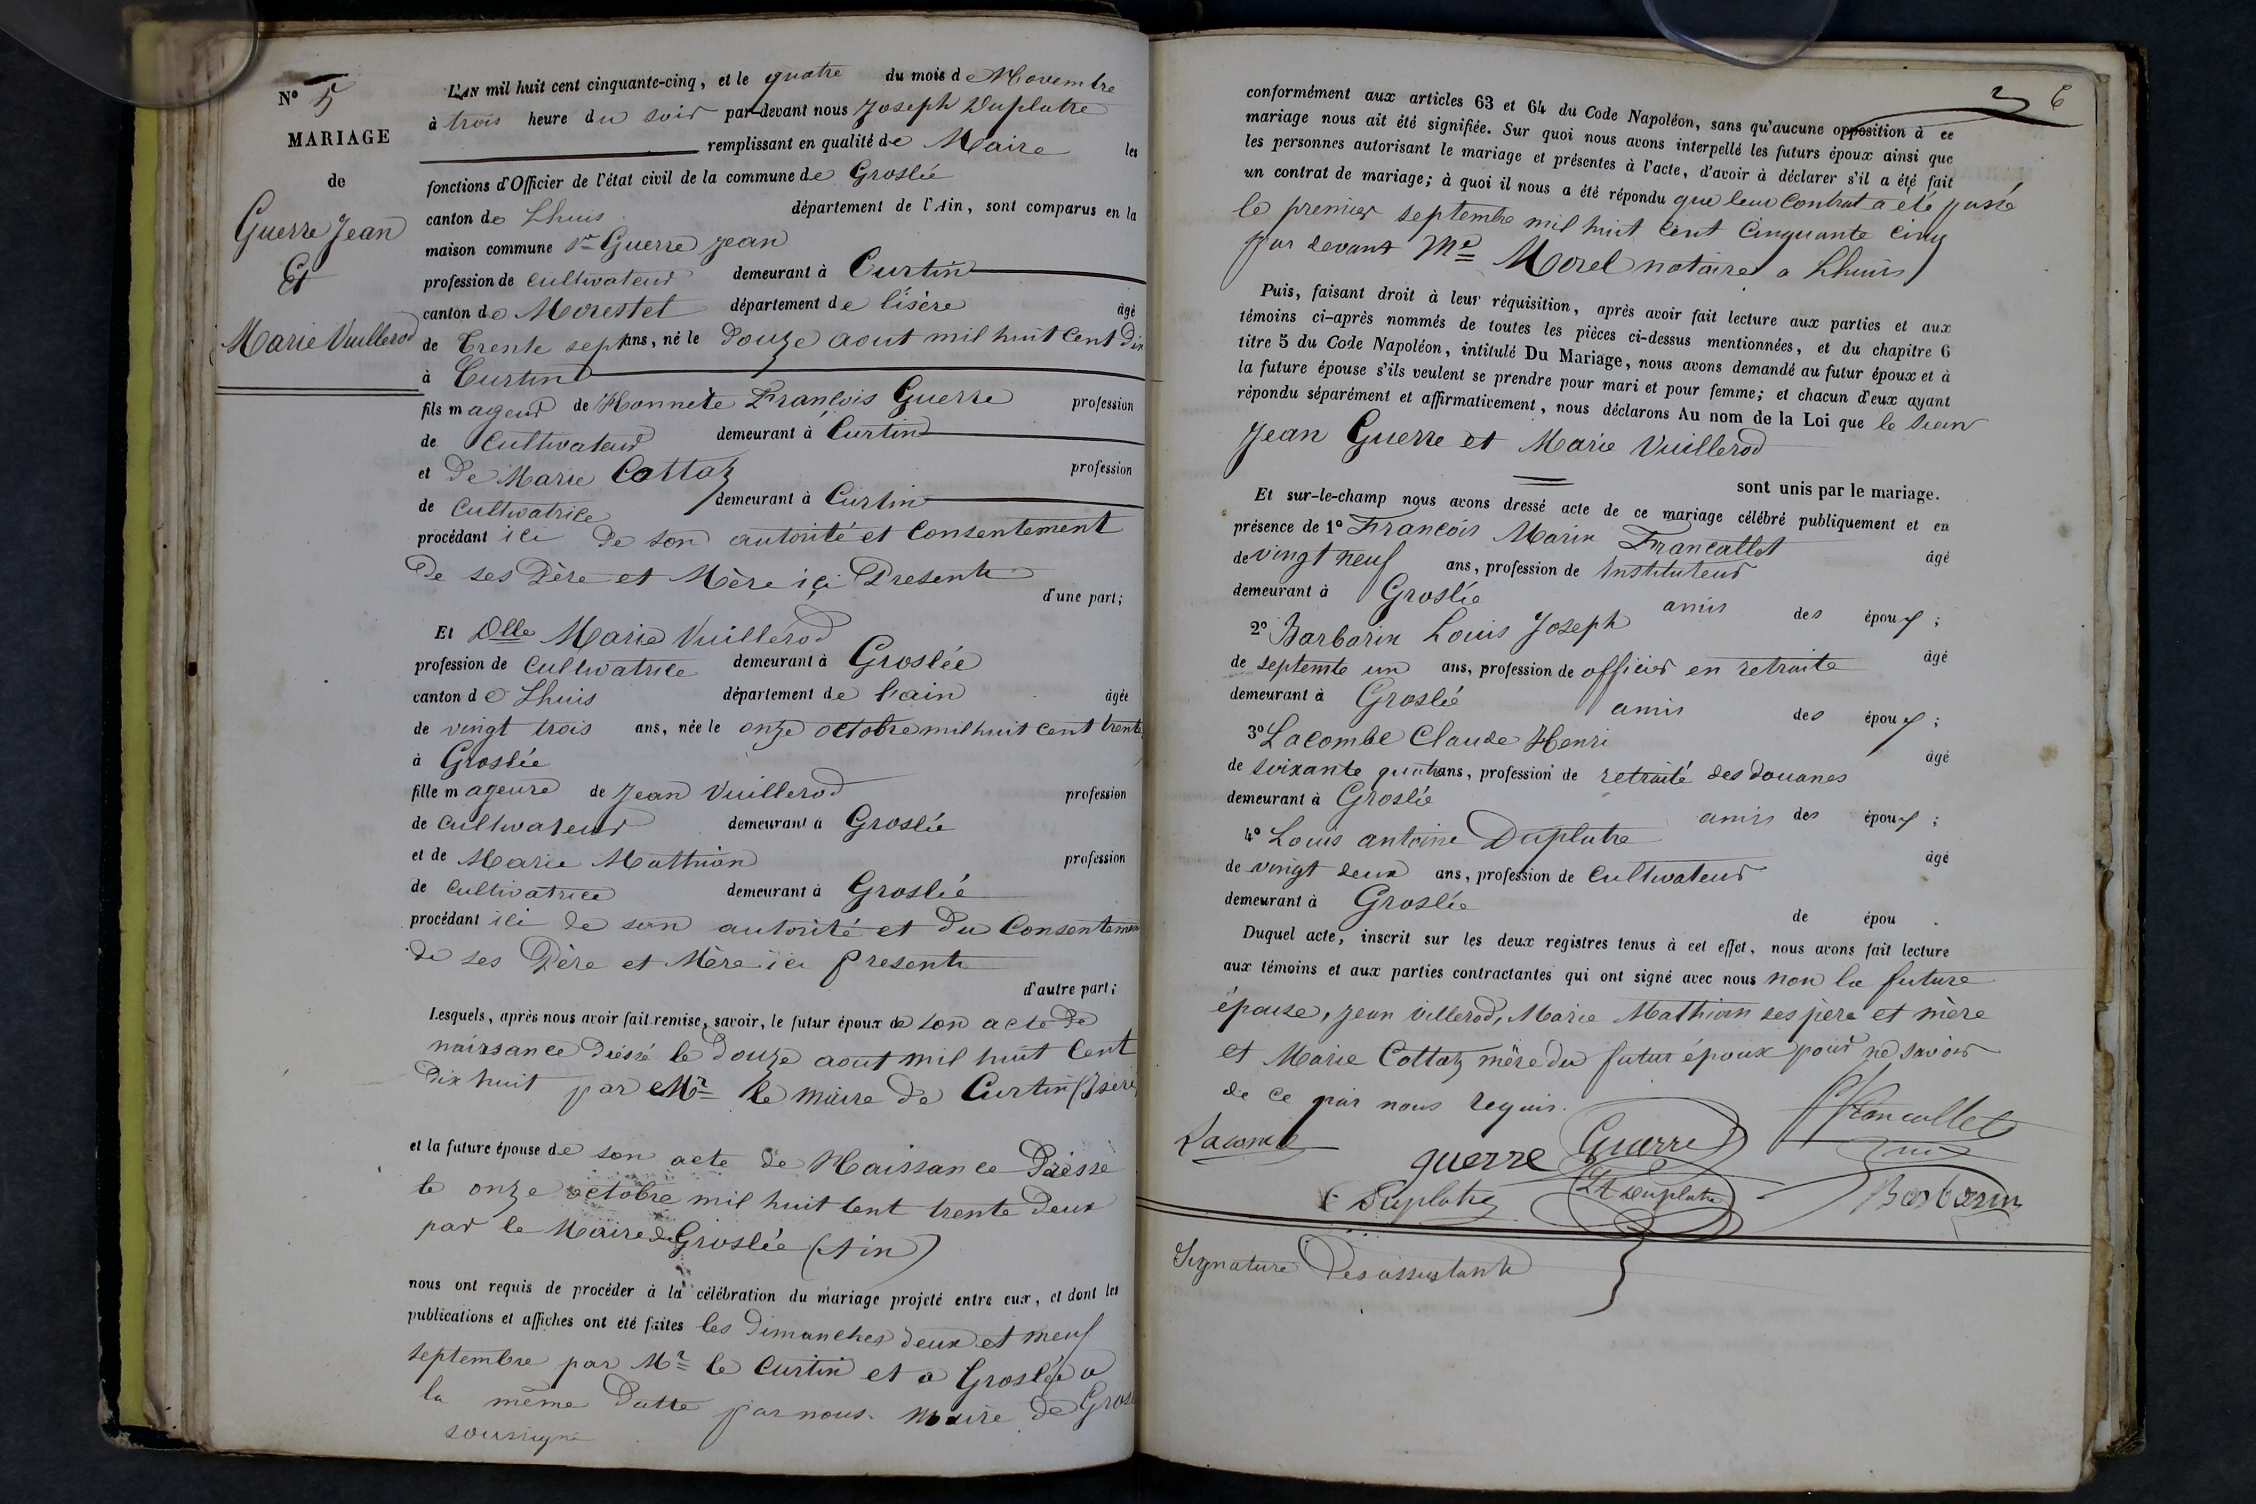 N° 5
MARIAGE
de
Guerre Jean
Et
Marie Vuillerod
L'AN mil huit cent cinquante-cinq, et le quatre du mois de Novembre
à trois heure du soir par-devant nous Joseph Duplatre
remplissant en qualité de Maire les
fonctions d'Officier de l'état civil de la commune de Groslée
canton de Lhuis département de l'Ain, sont comparus en la
maison commune Sr Guerre Jean
profession de cultivateur demeurant à Curtin
canton de Morestel département de l'isère âgé
de Trente sept ans, né le Douze aout mil huit Cent Dix
à Curtin
fils mageur de Honnete François Guerre profession
de Cultivateur demeurant à Curtin
et De Marie Cottaz profession
de Cultivatrice demeurant à Curtin
procédant ici De son autorité et Consentement
De ses Père et Mère ici Presents
d'une part;
Et Dlle Marie Vuillerod
profession de Cultivatrice demeurant à Groslée
canton de Lhuis département de l'ain âgée
de vingt trois ans, née le onze octobre mil huit cent trente
à Groslée
fille mageure de Jean Vuillerod profession
de Cultivateur demeurant à Groslée
et de Marie Mathian profession
de Cultivatrice demeurant à Groslée
procédant ici de son autorité et Du Consentemen
de ses Père et Mère ici presents
d'autre part;
Lesquels, après nous avoir fait remise, savoir, le futur époux de son acte De
naissance Dréssé le Douze aout mil huit Cent
Dix huit par Mr le maire de Curtin (Isère
et la future épouse de son acte de Naissance Dréssé
le onze octobre mil huit Cent trente Deux
par le Maire de Groslée (Ain)
nous ont requis de procéder à la célébration du mariage projeté entre eux, et dont les
publications et affiches ont été faites les Dimanches deux et neuf
septembre par Mr le Curtin et a Groslée a
la même Datte par nous. maire de Gros
soussigné
6
conformément aux articles 63 et 64 du Code Napoléon, sans qu'aucune opposition à ce
mariage nous ait été signifiée. Sur quoi nous avons interpellé les futurs époux ainsi que
les personnes autorisant le mariage et présentes à l'acte, d'avoir à déclarer s'il a été fait
un contrat de mariage; à quoi il nous a été répondu que leur Contrat a été passé
le premier septembre mil huit Cent Cinquante Cinq
par devant Me Morel notaire a Lhuis
Puis, faisant droit à leur réquisition, après avoir fait lecture aux parties et aux
témoins ci-après nommés de toutes les pièces ci-dessus mentionnées, et du chapitre 6
titre 5 du Code Napoléon, intitulé Du Mariage, nous avons demandé au futur époux et à
la future épouse s'ils veulent se prendre pour mari et pour femme; et chacun d'eux ayant
répondu séparément et affirmativement, nous déclarons Au nom de la Loi que le Sieur
Jean Guerre et Marie Vuillerod
sont unis par le mariage.
Et sur-le-champ nous avons dressé acte de ce mariage célébré publiquement et en
présence de 1° François Marin Francallet âgé
de vingt neuf ans, profession de Instituteur
demeurant à Groslée amis des époux;
2° Barbarin Louis Joseph âgé
de septente un ans, profession de officier en retraite
demeurant à Groslée amis des époux;
3° Lacombe Claude Henri âgé
de soixante quatre ans, profession de retraité des douanes
demeurant à Groslée amis des époux;
4° Louis antoine Duplatre âgé
de vingt deux ans, profession de Cultivateur
demeurant à Groslée de épou .
Duquel acte, inscrit sur les deux registres tenus à cet effet, nous avons fait lecture
aux témoins et aux parties contractantes qui ont signé avec nous non la future
épouse, Jean villerod, Marie Mathian ses père et mère
et Marie Cottaz mère du futur époux pour ne savoir
de ce par nous requis.
Lacombe guerre Guerre Francallet
Duplatre LA Duplatre Barbarin
Signature Des assistants